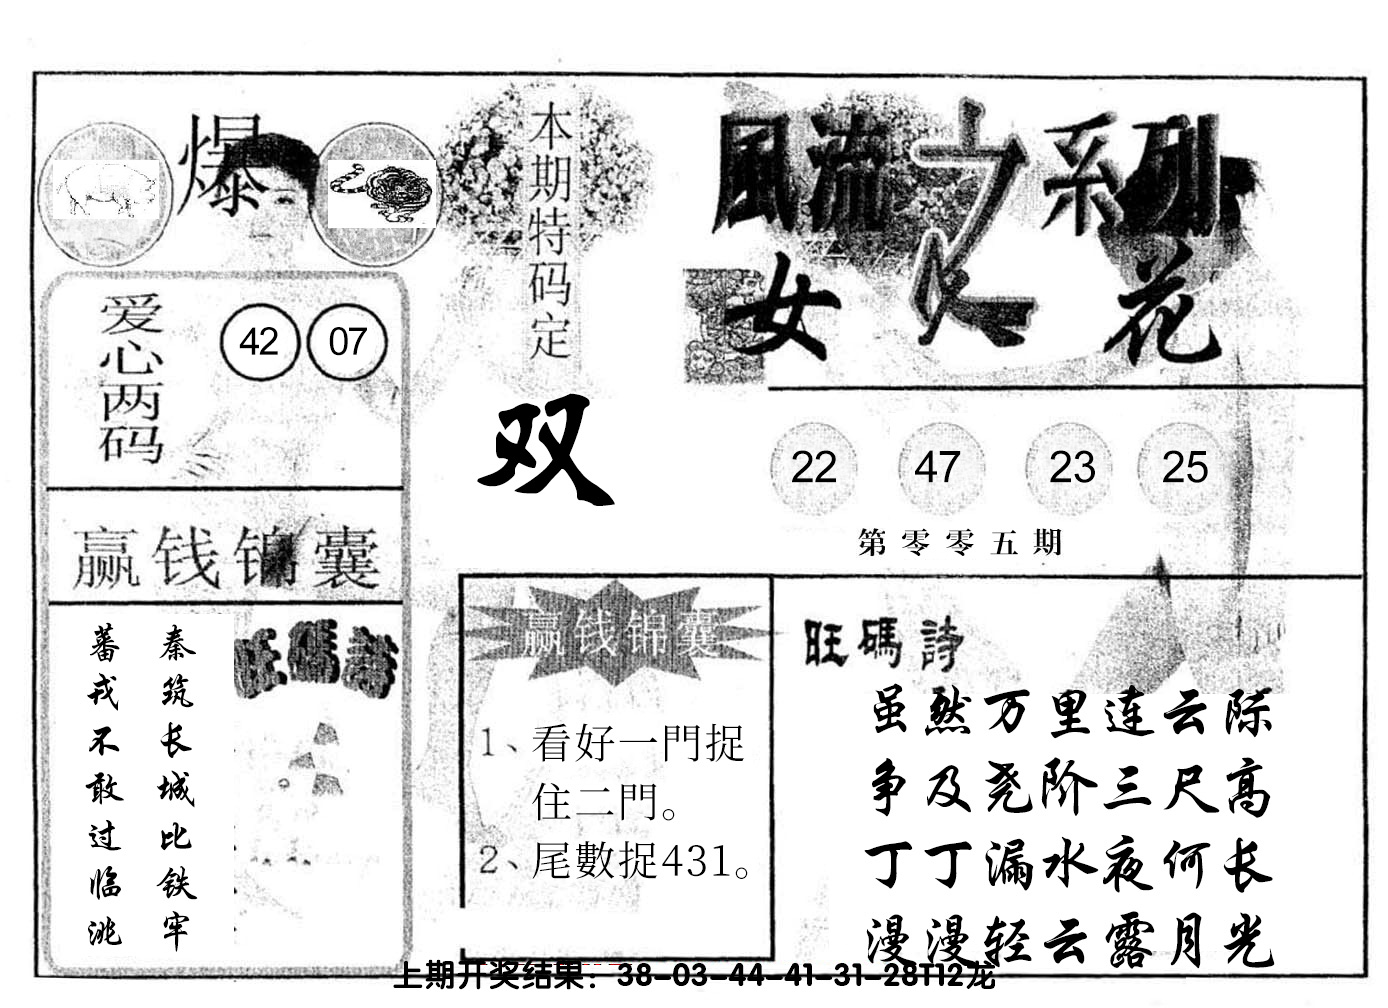 爆
本期特码定
双
風流之系列
女人花
爱心两码
42 07
22 47 23 25
第零零五期
赢钱锦囊
秦筑长城比铁牢
蕃戎不敢过临洮
旺碼詩
赢钱锦囊
1、看好一門捉
住二門。
2、尾數捉431。
旺碼詩
虽然万里连云际
争及尧阶三尺高
丁丁漏水夜何长
漫漫轻云露月光
上期开奖结果：38-03-44-41-31-28T12龙